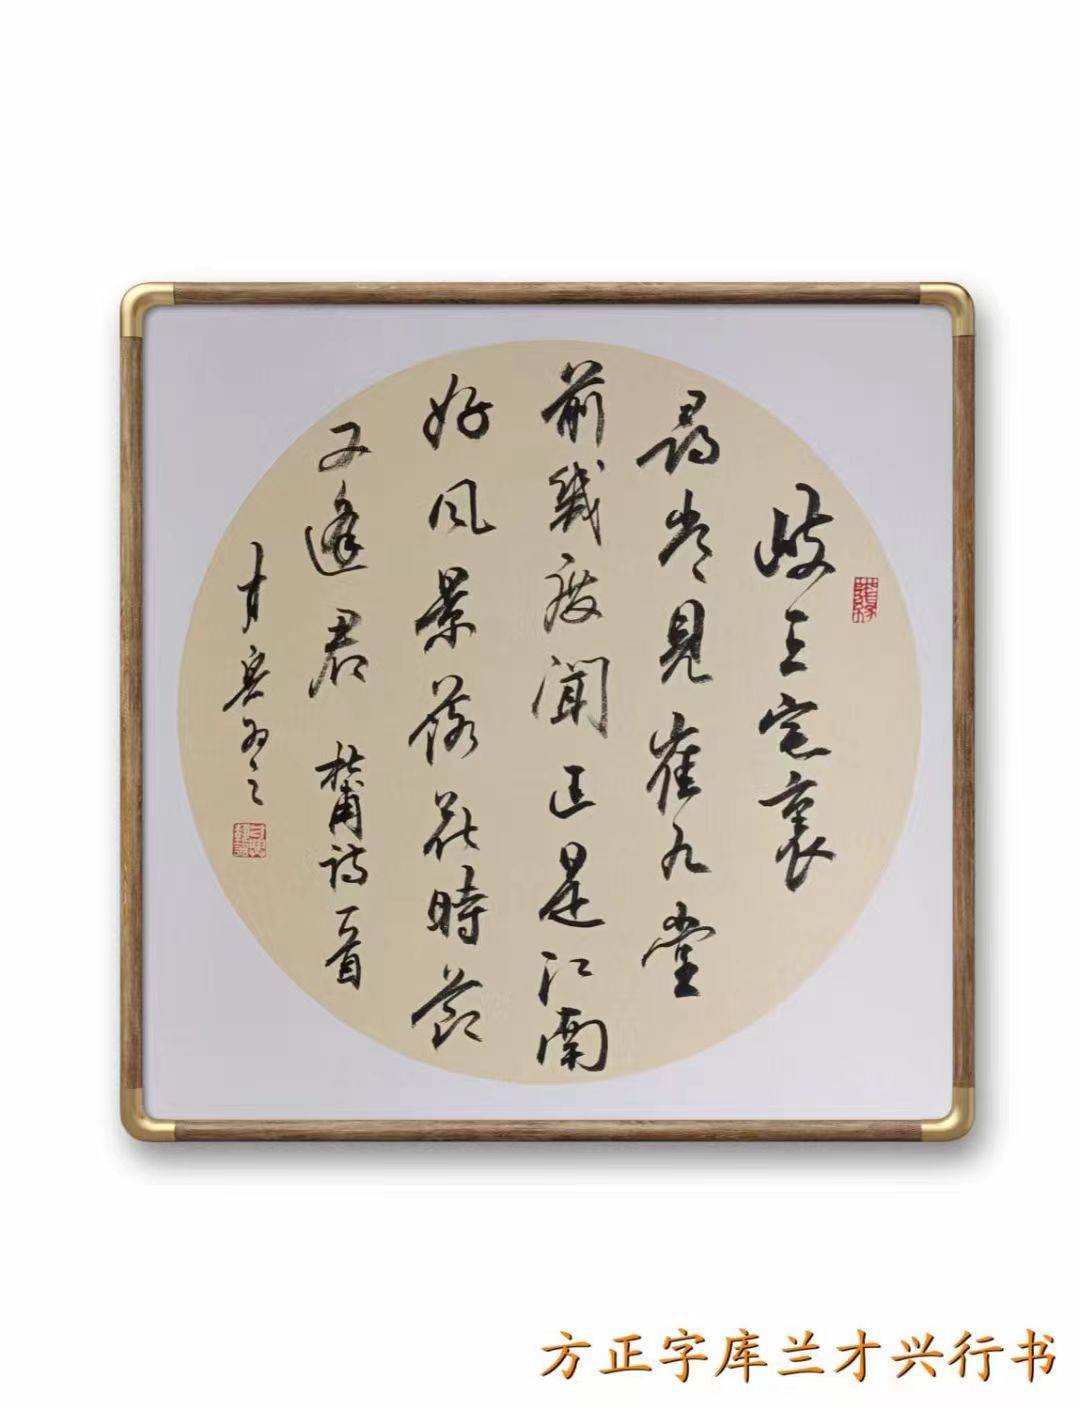 岐王宅裏
尋常見崔九堂
前幾度聞正是江南
好風景落花時節
又逢君 杜甫詩一首
才興書之
方正字库兰才兴行书